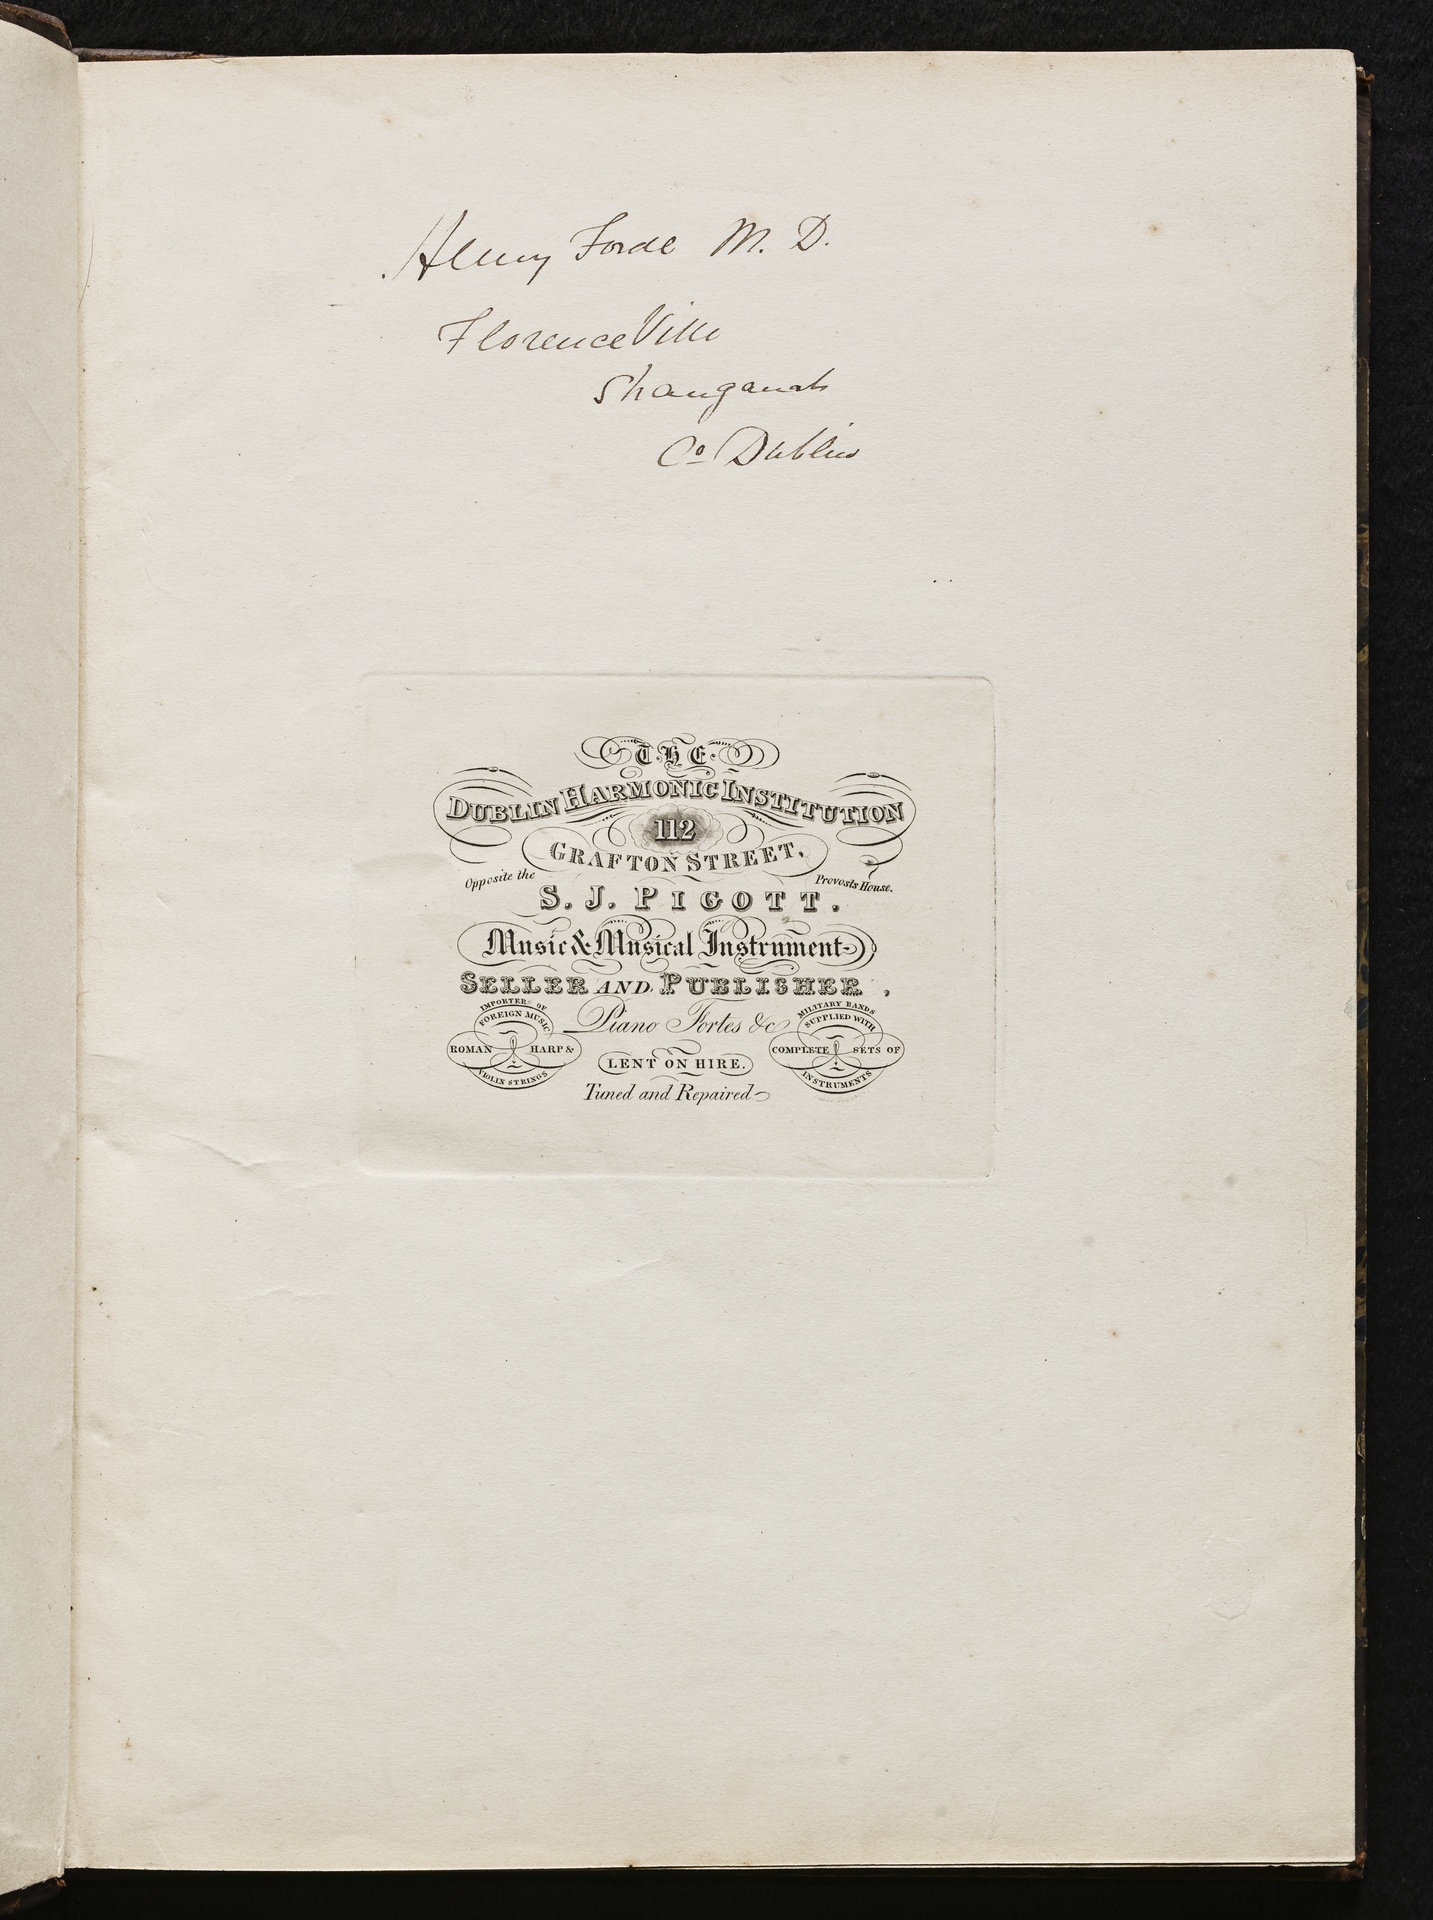 Henry Forde M. D.
Florence Ville
Shanganah
Co Dublin
THE
DUBLIN HARMONIC INSTITUTION
112
GRAFTON STREET,
Opposite the Provosts House.
S. J. PIGOTT.
Music & Musical Instrument
SELLER AND PUBLISHER,
IMPORTER OF
FOREIGN MUSIC
ROMAN HARP &
VIOLIN STRINGS
Piano Fortes &c
LENT ON HIRE.
Tuned and Repaired
MILITARY BANDS
SUPPLIED WITH
COMPLETE SETS OF
INSTRUMENTS